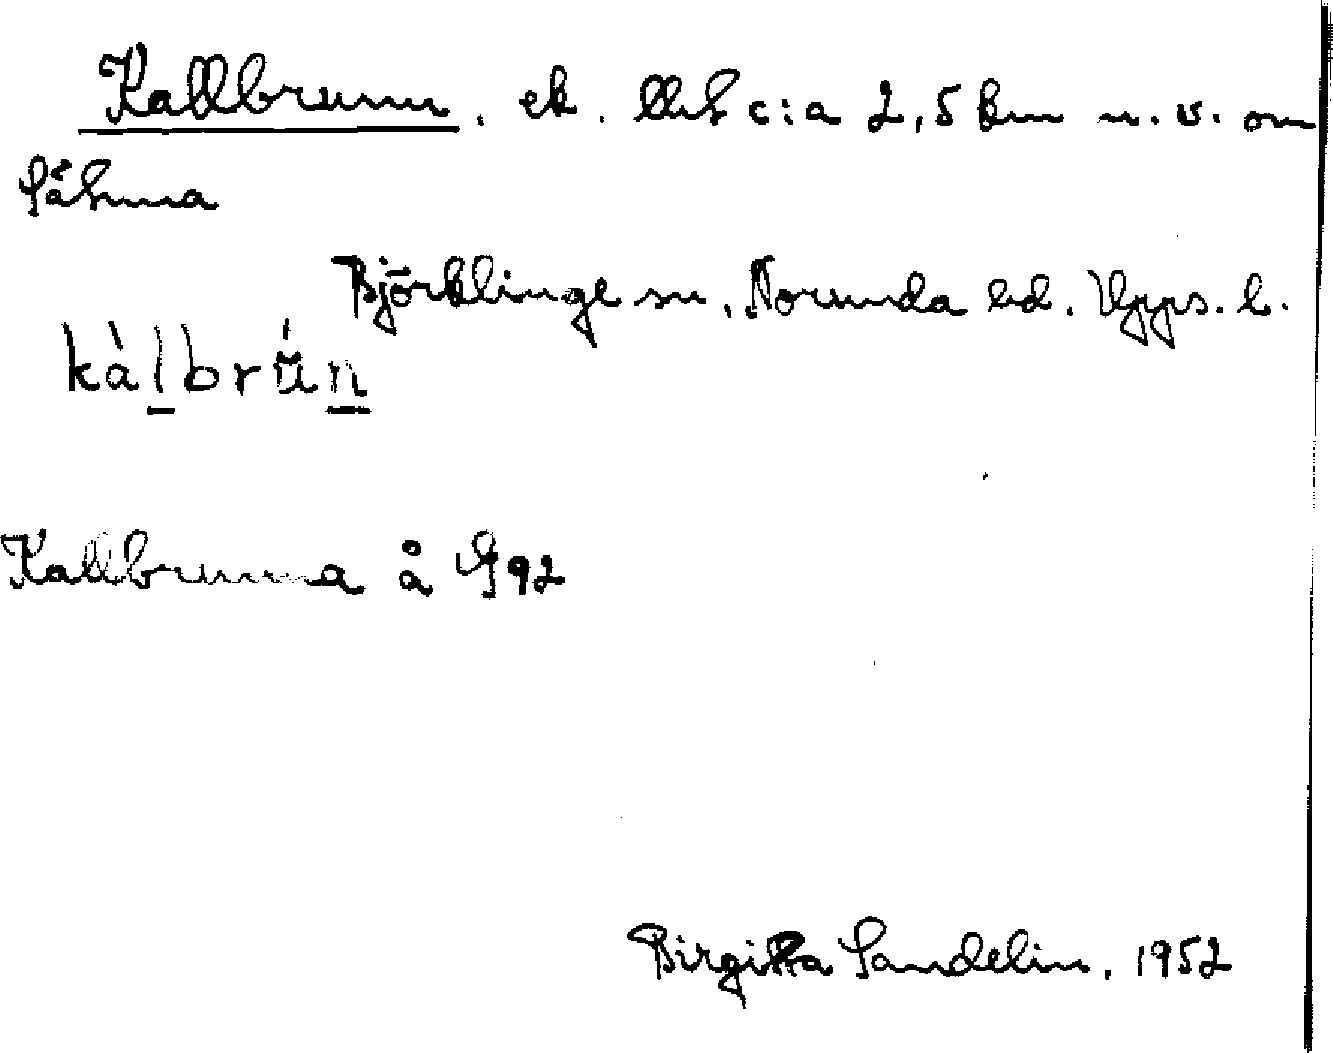 Kallbrunn, ek. llit c:a 2,5 km n.v. om
Såtuna
Björklinge sn, Norunda hd. Upps. l.
kàlbrún
Kallbrunna å G 92
Birgitta Sandelin. 1952